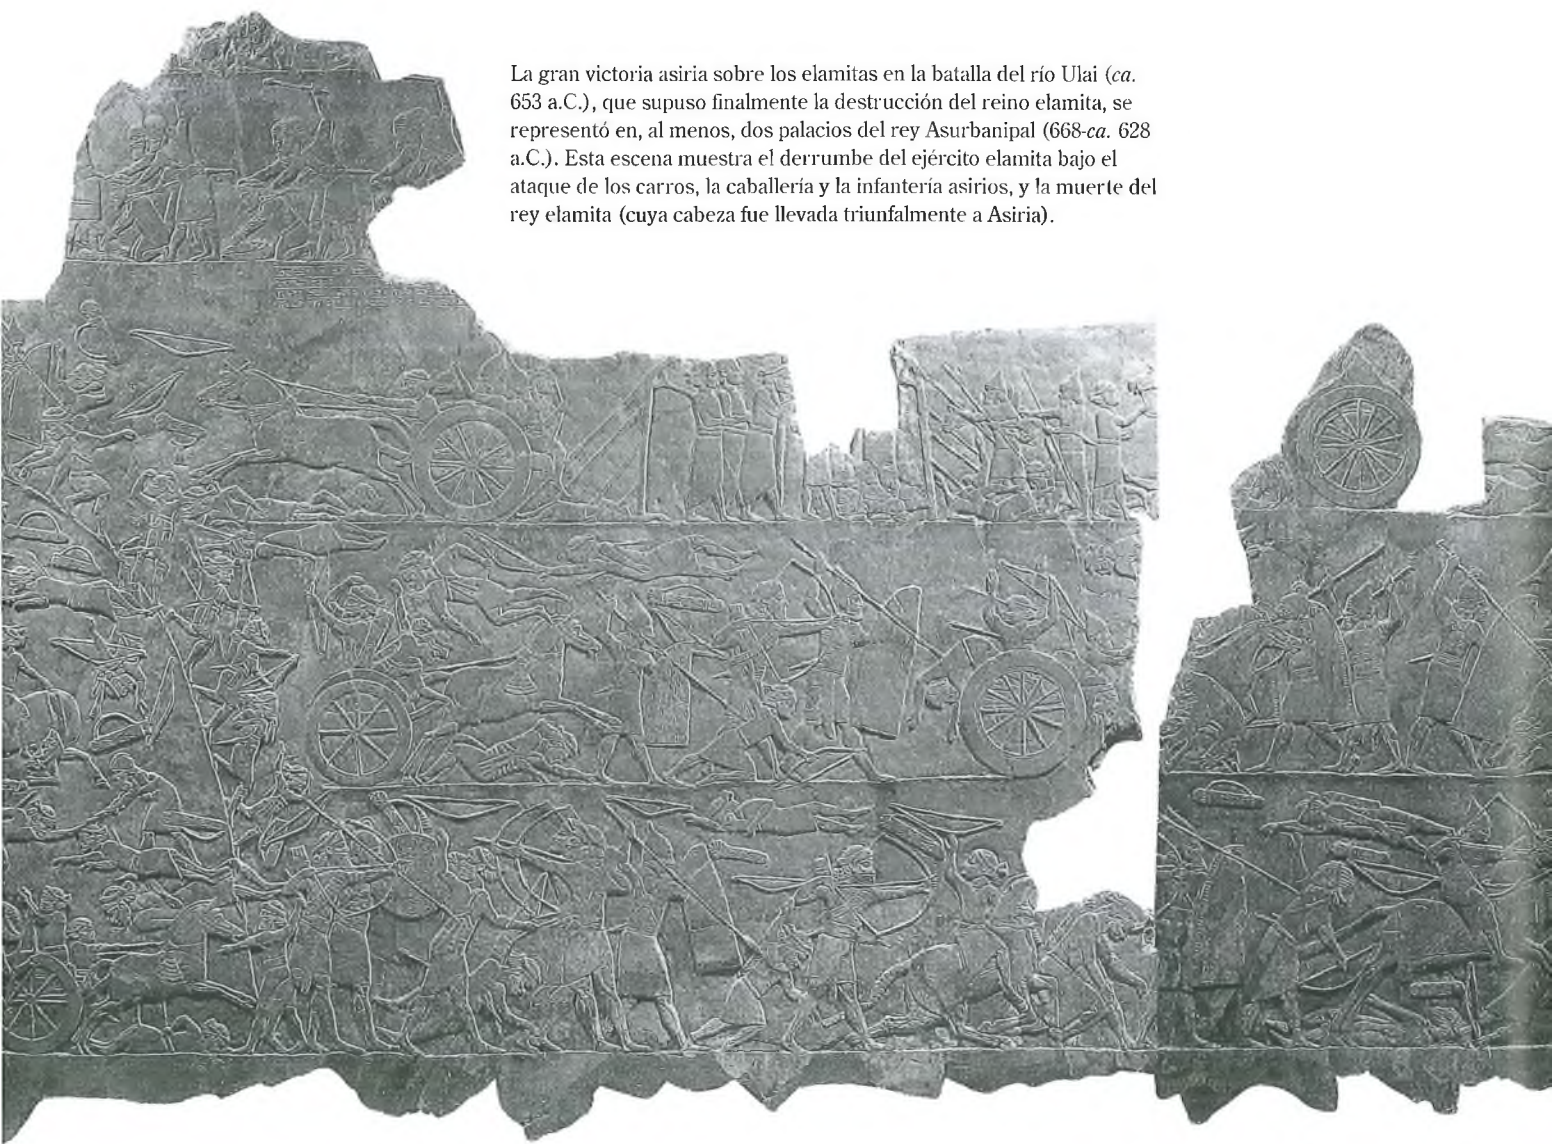 La gran victoria asiria sobre los elamitas en la batalla del río Ulai (ca.
653 a.C.), que supuso finalmente la destrucción del reino elamita, se
representó en, al menos, dos palacios del rey Asurbanipal (668-ca. 628
a.C.). Esta escena muestra el derrumbe del ejército elamita bajo el
ataque de los carros, la caballería y la infantería asirios, y la muerte del
rey elamita (cuya cabeza fue llevada triunfalmente a Asiria).